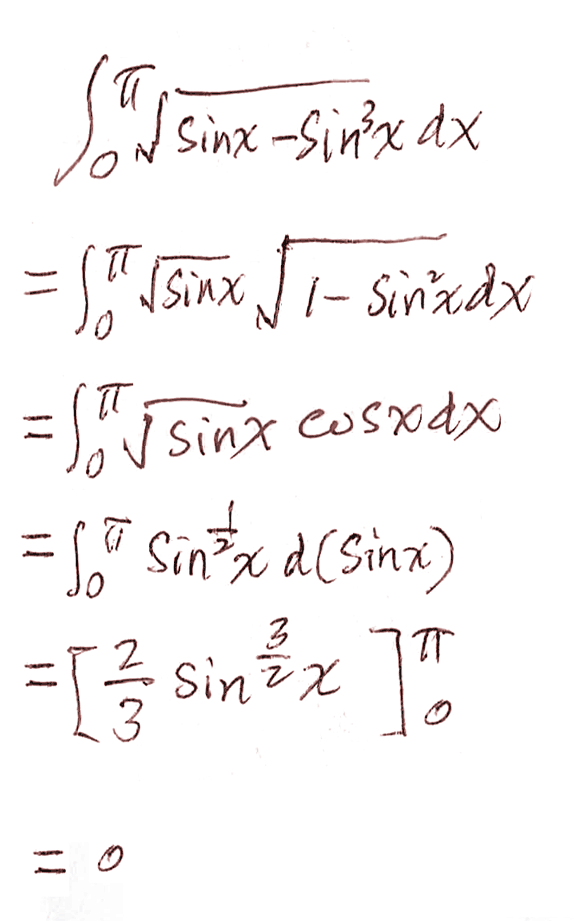 ∫₀^π √(sinx − sin³x) dx
= ∫₀^π √(sinx) √(1 − sin²x) dx
= ∫₀^π √(sinx) cosx dx
= ∫₀^π sin^(1/2)x d(sinx)
= [2/3 sin^(3/2)x]₀^π
= 0